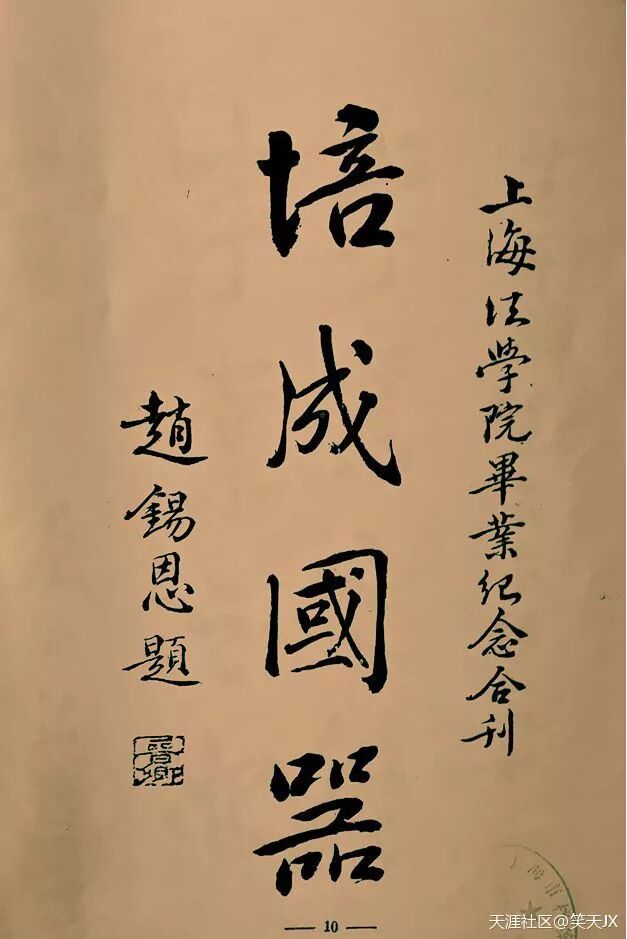 上海法學院畢業紀念合刊
培成國器
趙錫恩題
晉卿
— 10 —
天涯社区@笑天JX